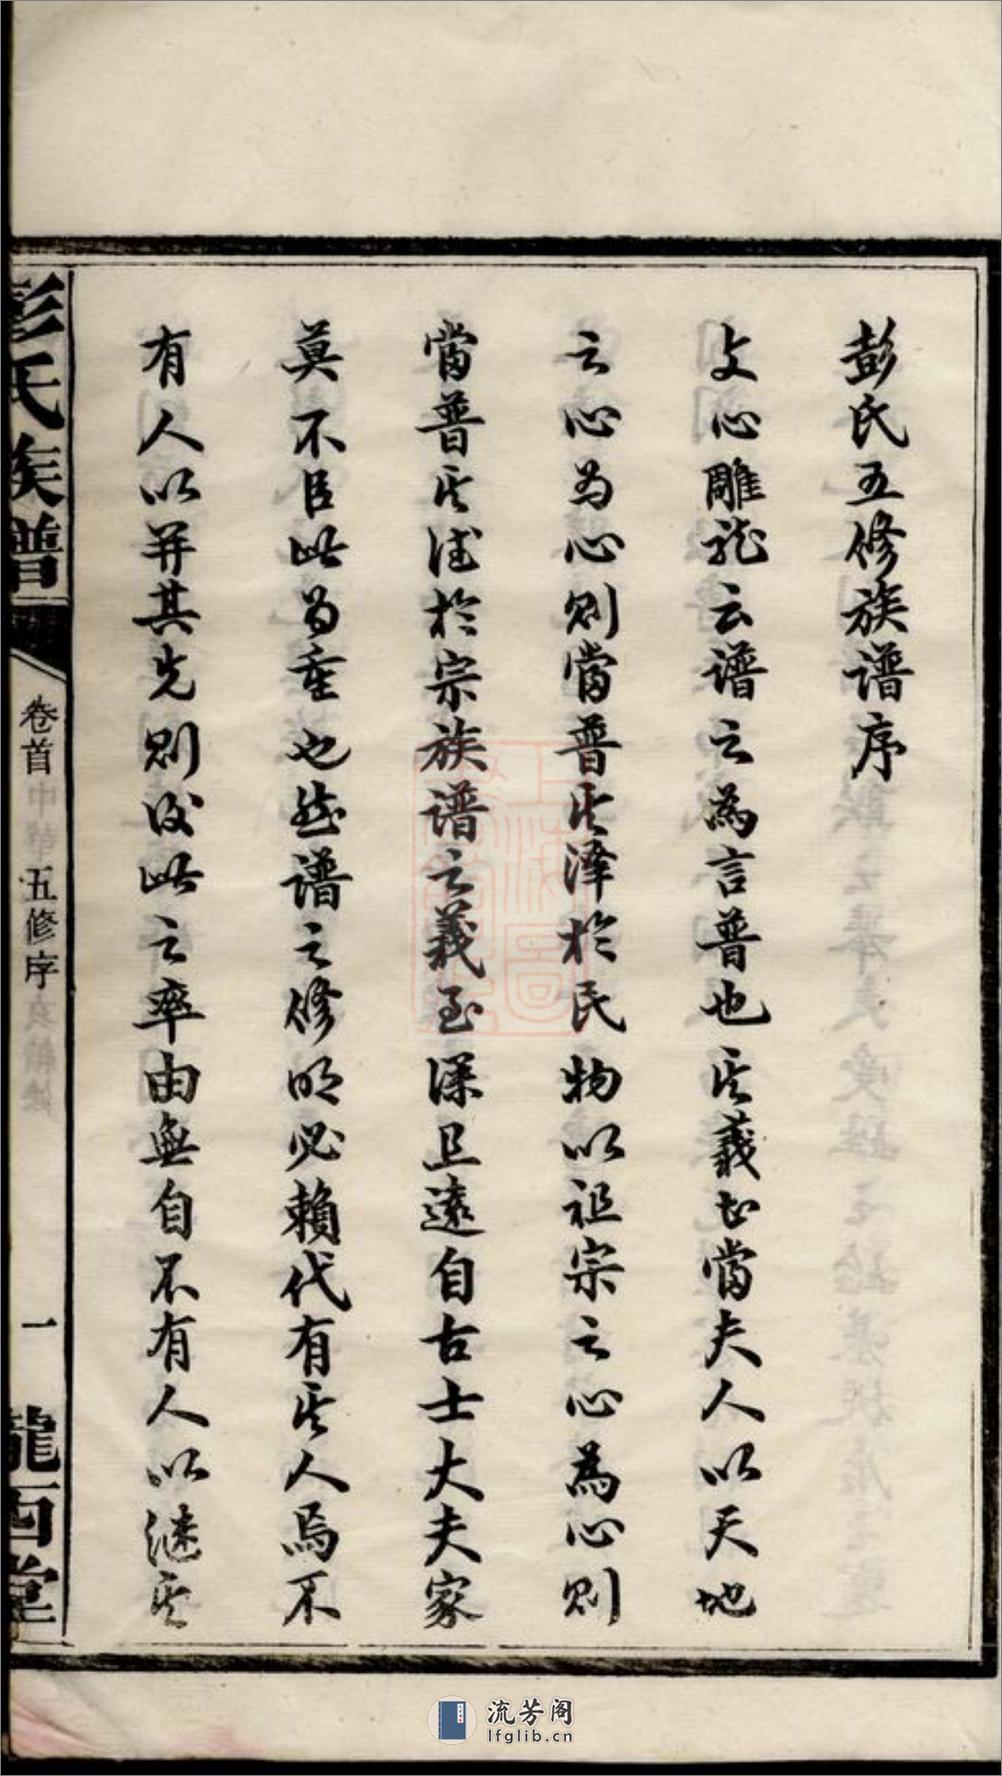 彭氏五修族譜序
文心雕龍云譜之為言普也其義甚當夫人以天地
之心為心則當普其澤於民物以祖宗之心為心則
當普其德於宗族譜之義至深且遠自古士大夫家
莫不以此為重也然譜之修明必賴代有其人焉不
有人以開其先則後此之率由無自不有人以繼其
彭氏族譜
卷首
五修序
一
龍西堂
流芳阁
lfglib.cn